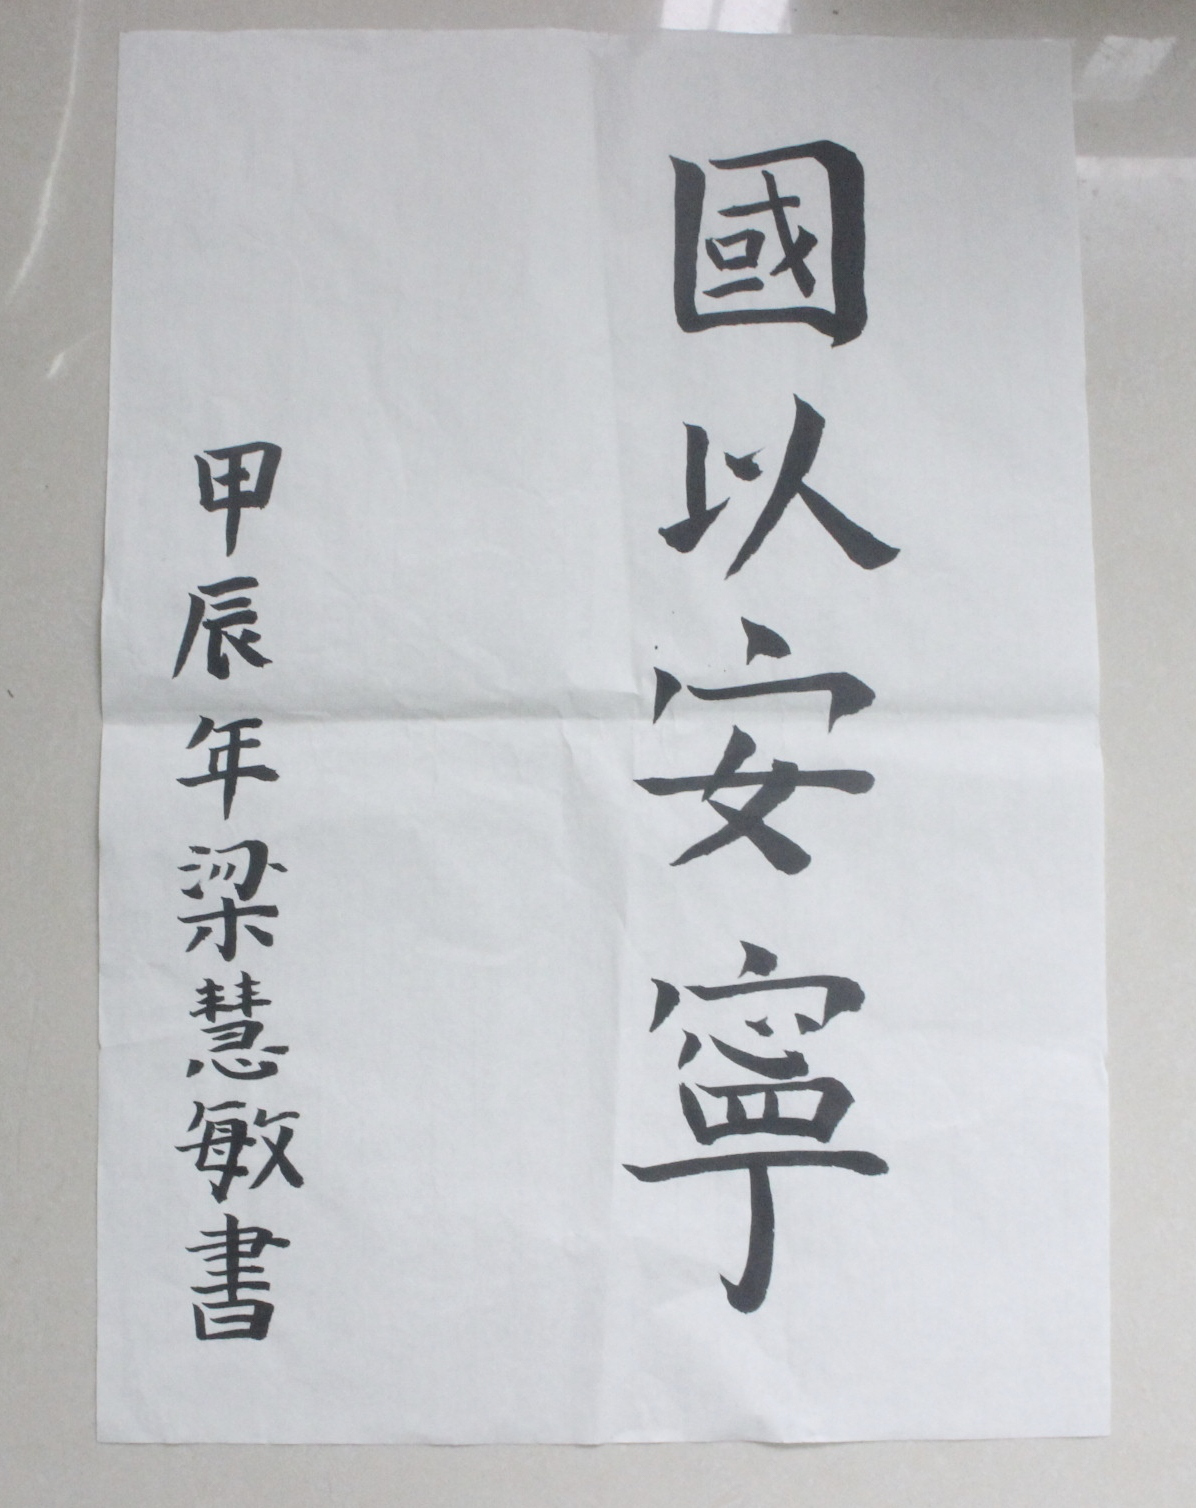 國以安寧
甲辰年梁慧敏書